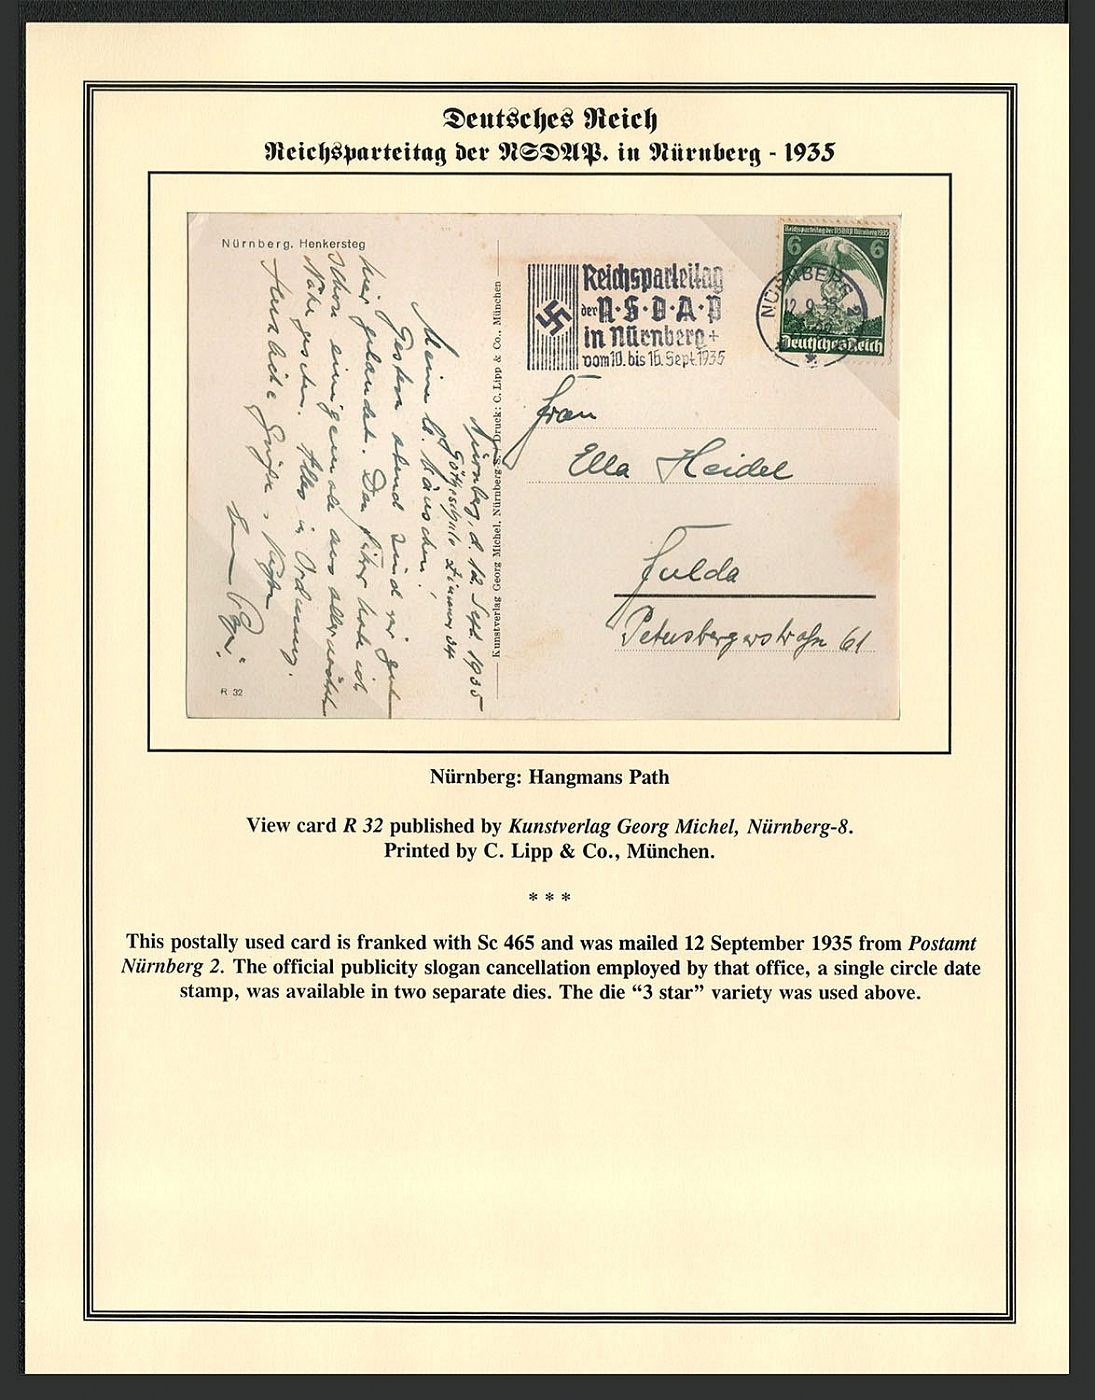 Deutsches Reich
Reichsparteitag der NSDAP. in Nürnberg - 1935
Nürnberg. Henkersteg
Reichsparteitag
der N·S·D·A·P
in Nürnberg+
vom 10. bis 16. Sept. 1935
Reichsparteitag der NSDAP Nürnberg 1935
6 6
Deutsches Reich
NÜRNBERG 2
12.9.35
Frau
Ella Heidel
Fulda
Petersbergerstraße 61
Kunstverlag Georg Michel, Nürnberg-S. Druck: C. Lipp & Co., München
Nürnberg, d. 12. Sept. 1935
Meine lb. Mäuschen!
Gestern abend sind wir gut
hier gelandet. Den Führer habe ich
schon einigemale aus allernächster
Nähe gesehen. Alles in Ordnung.
Herzliche Grüße, Küsse
Dein
R 32
Nürnberg: Hangmans Path
View card R 32 published by Kunstverlag Georg Michel, Nürnberg-8.
Printed by C. Lipp & Co., München.
* * *
This postally used card is franked with Sc 465 and was mailed 12 September 1935 from Postamt
Nürnberg 2. The official publicity slogan cancellation employed by that office, a single circle date
stamp, was available in two separate dies. The die “3 star” variety was used above.